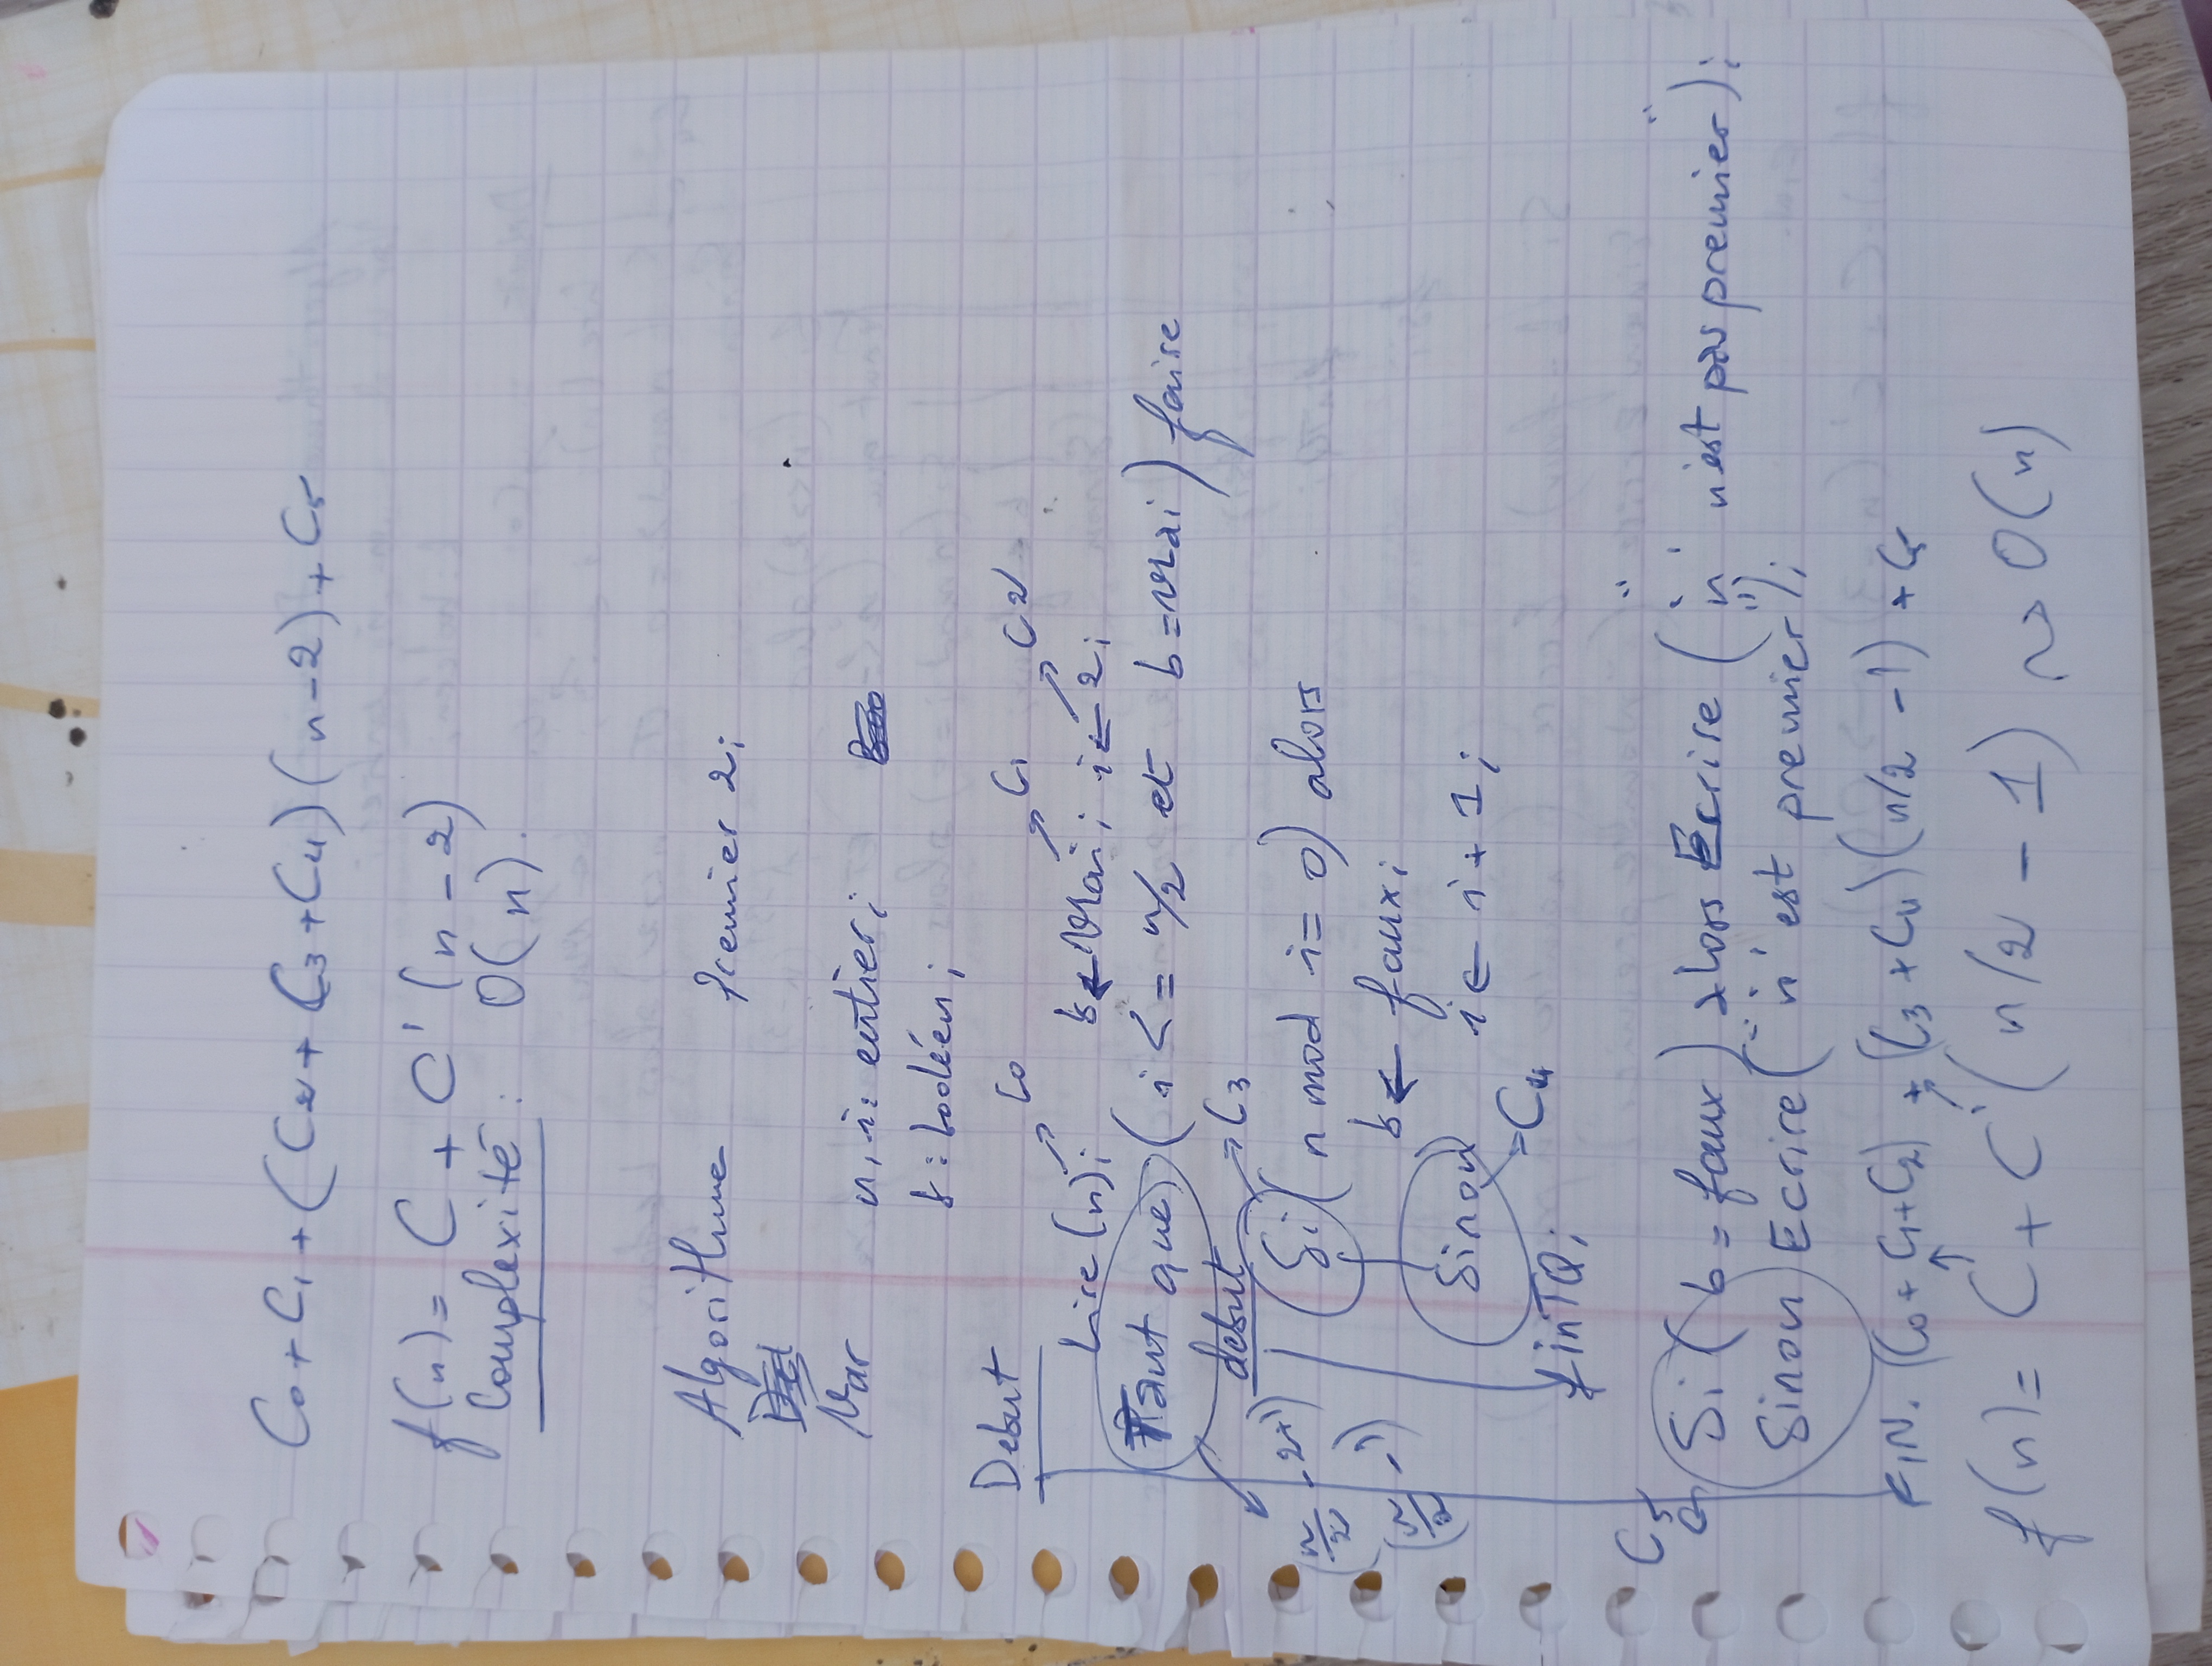 C0 + C1 + (C2 + C3 + C4) (n - 2) + C5
f(n) = C + C' (n - 2)
Complexité : O(n).
Algorithme Premier 2;
Var n, i: entier;
b : booléen;
Debut C0 C1 C2
Lire(n); b ← vrai; i ← 2;
Tant que (i <= n/2 et b = vrai) faire
debut C3
(n/2 - 2+1)
Si (n mod i = 0) alors
(n/2 - 1)
b ← faux;
Sinon i ← i + 1;
C4
finTQ;
C5
Si (b = faux) alors Ecrire ("'n' n'est pas premier");
Sinon Ecrire ("'n' est premier");
FIN. (C0 + C1 + C2) + (C3 + C4) (n/2 - 1) + C5
f(n) = C + C' (n/2 - 1) ~> O(n)